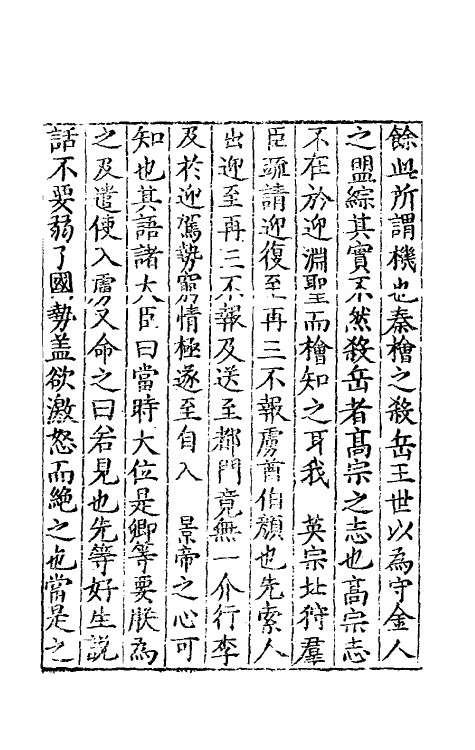 餘此所謂機也秦檜之殺岳王世以為守金人
之盟綜其實不然殺岳者髙宗之志也髙宗志
不在於迎淵聖而檜知之耳我　英宗北狩羣
臣疏請迎復至再三不報虜酋伯顏也先索人
出迎至再三不報及送至都門竟無一介行李
及於迎駕勢窮情極遂至自入　景帝之心可
知也其語諸大臣曰當時大位是卿等要朕為
之及遣使入虜又命之曰若見也先等好生說
話不要弱了國勢盖欲激怒而絶之也當是之